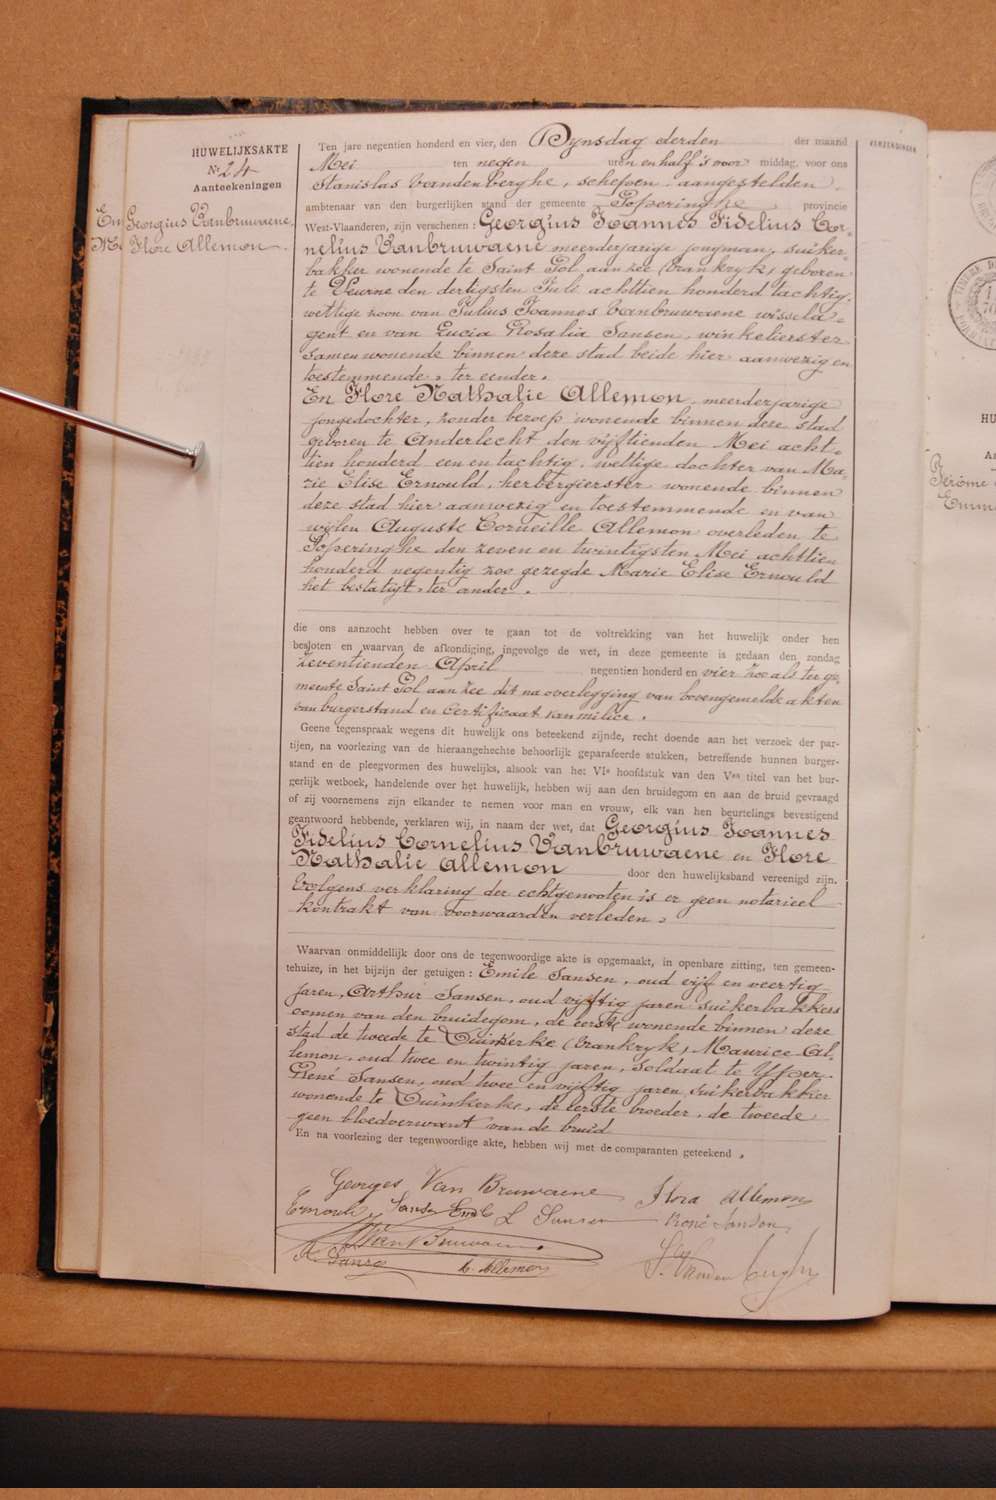 HUWELIJKSAKTE
Nr 24
Aanteekeningen
Georgius Vanbruwaene,
Flore Allemon.
Ten jare negentien honderd en vier, den Dynsdag derden der maand
Mei ten negen uren en half 's voor middag, voor ons
Stanislas Vandenberghe, schepen aangestelden
ambtenaar van den burgerlijken stand der gemeente Poperinghe, provincie
West-Vlaanderen, zijn verschenen : Georgius Joannes Fidelius Cor-
nelius Vanbruwaene meerderjarige jongman, suiker-
bakker wonende te Saint Pol aan zee (Vrankryk) geboren
te Veurne den dertigsten Juli achttien honderd tachtig,
wettige zoon van Julius Joannes Vanbruwaene wissela-
gent en van Lucia Rosalia Jansen, winkelierster
samen wonende binnen deze stad beide hier aanwezig en
toestemmende, ter eender.
En Flore Nathalie Allemon, meerderjarige
jongedochter, zonder beroep wonende binnen deze stad
geboren te Anderlecht den vijftienden Mei acht-
tien honderd een en tachtig, wettige dochter van Ma-
rie Elise Ernould, herbergierster wonende binnen
deze stad hier aanwezig en toestemmende en van
wijlen Auguste Corneille Allemon overleden te
Poperinghe den zeven en twintigsten Mei achttien
honderd negentig zoo gezegde Marie Elise Ernould
het bestatigt, ter ander.
die ons aanzocht hebben over te gaan tot de voltrekking van het huwelijk onder hen
besloten en waarvan de afkondiging, ingevolge de wet, in deze gemeente is gedaan den zondag
zeventienden April negentien honderd en vier zoo als ter ge-
meente Saint Pol aan zee dit na overlegging van bovengemelde akten
van burgerstand en certificaat van milice.
Geene tegenspraak wegens dit huwelijk ons beteekend zijnde, recht doende aan het verzoek der par-
tijen, na voorlezing van de hieraangehechte behoorlijk geparafeerde stukken, betreffende hunnen burger-
stand en de pleegvormen des huwelijks, alsook van het VIe hoofdstuk van den Ven titel van het bur-
gerlijk wetboek, handelende over het huwelijk, hebben wij aan den bruidegom en aan de bruid gevraagd
of zij voornemens zijn elkander te nemen voor man en vrouw, elk van hen beurtelings bevestigend
geantwoord hebbende, verklaren wij, in naam der wet, dat Georgius Joannes
Fidelius Cornelius Vanbruwaene en Flore
Nathalie Allemon door den huwelijksband vereenigd zijn.
Volgens verklaring der echtgenooten is er geen notarieel
kontrakt van voorwaarden verleden.
Waarvan onmiddellijk door ons de tegenwoordige akte is opgemaakt, in openbare zitting, ten gemeen-
tehuize, in het bijzijn der getuigen : Emile Jansen, oud vijf en veertig
jaren, Arthur Jansen, oud vijftig jaren suikerbakkers
oomen van den bruidegom, de eerste wonende binnen deze
stad de tweede te Duinkerke (Vrankryk) Maurice Al-
lemon, oud twee en twintig jaren, soldaat te Yper
René Jansen, oud twee en vijftig jaren suikerbakker
wonende te Duinkerke, de eerste broeder, de tweede
geen bloedverwant van de bruid
En na voorlezing der tegenwoordige akte, hebben wij met de comparanten geteekend.
Georges Van Bruwaene Flora Allemon
Ernould Jansen Emile L Jansen René Jansen
A. Jansen M. Allemon S. Vandenberghe
VERZENDINGEN
HU
Jérôme
Emm